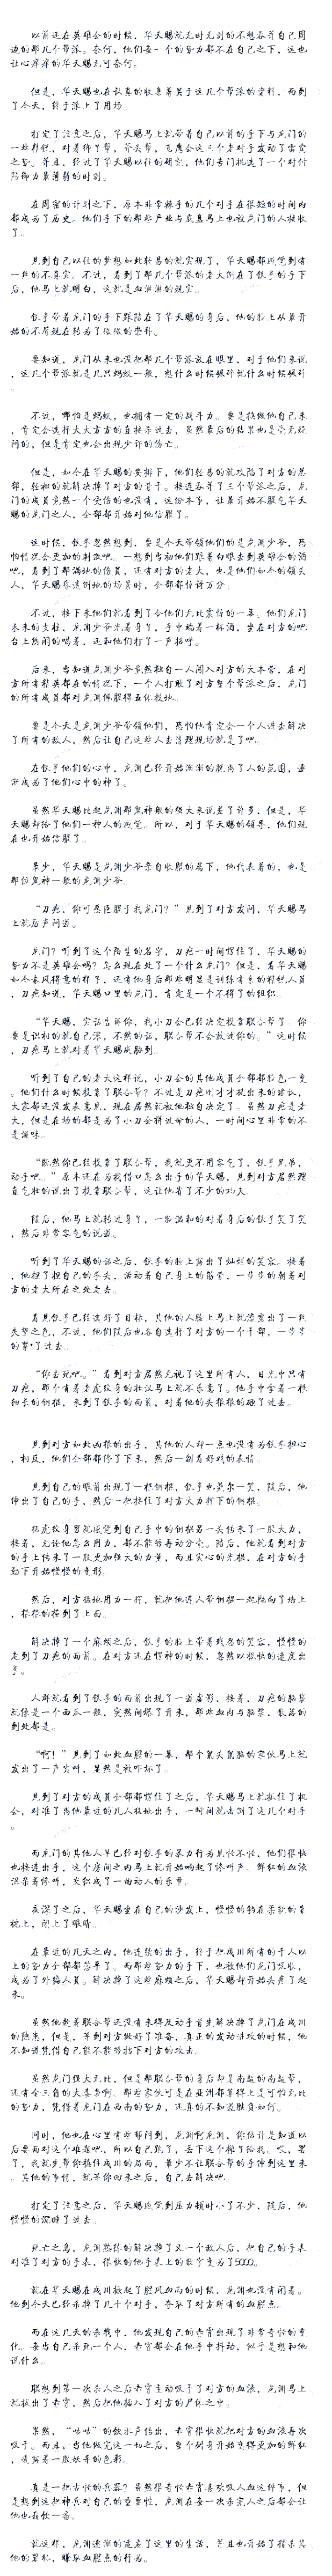 以前还在英雄会的时候，华天赐就无时无刻的不想吞并自己周
边的那几个帮派。奈何，他们每一个的势力都不在自己之下，这也
让心痒痒的华天赐无可奈何。
但是，华天赐也在认真的收集着关于这几个帮派的资料，而到
了今天，终于派上了用场。
打定了注意之后，华天赐马上就带着自己以前的手下与龙门的
一些精锐，对着
之势。并且，经过了华天赐以往的研究，他们专门挑选了一个对付
防御力最薄弱的时刻。
在周密的计划之下，原本非常棘手的几个对手在很短的时间内
都成为了历史。他们手下的那些产业与底盘马上也被龙门的人接收
了。
见到自己以往的梦想如此轻易的就实现了，华天赐都感觉到有
一丝的不真实。不过，看到了那几个帮派的老大倒在了铁手的手下
后，他马上就明白，这就是血淋淋的现实。
铁手带着龙门的手下跟随在了华天赐的身后，他的脸上从最开
始的不屑现在转为了微微的崇拜。
要知道，龙门从来也没把那几个帮派放在眼里，对于他们来说
，这几个帮派就是几只蚂蚁一般，想什么时候碾碎就什么时候碾碎
。
不过，哪怕是蚂蚁，也拥有一定的战斗力。要是换做他自己来
，肯定会选择大大方方的直接杀过去，虽然最后的结果也是毫无疑
问的，但是肯定也会出现少许的伤亡。
但是，如今在华天赐的安排下，他们轻易的就攻陷了对方的总
部，轻松的就解决掉了对方的骨干。接连吞并了三个帮派之后，龙
门的成员竟然一个受伤的也没有，这份本事，让最开始不服气华天
赐的龙门之人，全部都开始对他信服了。
这时候，铁手忽然想到，要是今天带领他们的是龙渊少爷，恐
怕情况会更加的刺激吧。一想到当初他们跟着白眼去到英雄会的酒
吧，看到了那满地的伤员，还有对方的老大，也是他们如今的领头
人，华天赐昏迷倒地的场景时，全部都惊讶万分。
不过，接下来他们就看到了令他们无比震惊的一幕。他们龙门
未来的支柱，龙渊少爷光着身子，手中端着一杯酒，坐在对方的吧
台上悠闲的喝着，还和他们打了一声招呼。
后来，当知道龙渊少爷竟然独自一人闯入对方的大本营，在对
方所有精英都在的情况下，一个人打败了对方整个帮派之后，龙门
的所有成员都对龙渊佩服得五体投地。
要是今天是龙渊少爷带领他们，恐怕他肯定会一个人进去解决
了所有的敌人，然后让自己这些人去清理现场就是了吧。
在铁手他们的心中，龙渊已经开始渐渐的脱离了人的范围，逐
渐成为了他们心中的神了。
虽然华天赐比起龙渊那鬼神般的强大来说差了许多，但是，华
天赐却给了他们一种人的感觉。所以，对于华天赐的领导，他们现
在也开始信服了。
最少，华天赐是龙渊少爷亲自收服的属下，他代表着的，也是
那位鬼神一般的龙渊少爷。
“刀疤，你可愿臣服于我龙门？”见到了对方发问，华天赐马
上就厉声问道。
龙门？听到了这个陌生的名字，刀疤一时间愣住了，华天赐的
势力不是英雄会吗？怎么现在处了一个什么龙门？但是，看华天赐
如今春风得意的样子，还有他身后那些明显是训练有素的精锐人员
，刀疤知道，华天赐口里的龙门，肯定是一个不得了的组织。
“华天赐，实话告诉你，我小刀会已经决定投靠联合帮了。你
要是识相的就自己滚，不然的话，联合帮不会放过你的。”这时候
，刀疤马上就对着华天赐威胁到。
听到了自己的老大这样说，小刀会的其他成员全部都脸色一变
。他们什么时候投靠了联合帮？不过是刀疤刚才才提出来的建议，
大家都还没发表意见，现在居然就被他独自决定了。虽然刀疤是老
大，但是在场的都是为了小刀会拼过命的人，一时间心里非常的不
是滋味。
“既然你已经投靠了联合帮，我就更不用客气了，铁手兄弟，
动手吧。”原本还在为找借口怎么出手的华天赐，见到对方居然理
直气壮的说出了投靠联合帮，这让他省了不少的功夫。
随后，他马上就转过身子，一脸温和的对着身后的铁手笑了笑
，然后非常客气的说道。
听到了华天赐的话之后，铁手的脸上露出了灿烂的笑容。接着
，他捏了捏自己的手头，活动着自己身上的筋骨，一步步的朝着对
方的老大所在之处走去。
看见铁手已经选好了目标，其他的人脸上马上就流露出了一丝
失望之色。不过，他们随后也各自选择了对方的一个干部，一步步
的靠*了过去。
“你去死吧。”看到对方居然无视了这里所有人，目光中只有
刀疤，那个有着老虎纹身的壮汉马上就不乐意了。他手中拿着一根
细长的钢棍，来到了铁手的面前，对着他的头狠狠的砸了过去。
见到对方如此凶狠的出手，其他的人却一点也没有为铁手担心
，相反，他们全部都停了下来，然后一副看好戏的表情。
见到自己的眼前出现了一根钢棍，铁手也莞尔一笑，随后，他
伸出了自己的手，然后一把接住了对方大力挥下的钢棍。
猛虎纹身男就感觉到自己手中的钢棍另一头传来了一股大力，
接着，无论他怎么用力，都不能够再动分毫。随后，他就看到对方
的手上传来了一股更加强大的力量，而且实心的光棍，在对方的手
劲下开始慢慢的变形。
然后，对方猛地用力一挥，就把他连人带钢棍一起抛向了墙上
，狠狠的撞到了上面。
解决掉了一个麻烦之后，铁手的脸上带着残忍的笑容，慢慢的
走到了刀疤的面前。在对方还在愣神的时候，忽然以极快的速度出
手。
人群就看到了铁手的面前出现了一道虚影，接着，刀疤的脑袋
就像是一个西瓜一般，突然间爆了开来，那些血肉与脑浆，飘落的
到处都是。
“啊！”见到了如此血腥的一幕，那个鼠头鼠脑的家伙马上就
发出了一声尖叫，显然是被吓坏了。
见到了对方的成员全部都愣住了之后，华天赐马上就抓住了机
会，对准了离他最近的几人猛地出手，一瞬间就击倒了这几个对手
。
而龙门的其他人早已经对铁手的暴力行为见怪不怪，他们很快
也接连出手，这个房间之内马上就开始响起了惨叫声。鲜红的血液
混杂着惨叫，交织成了一曲动人的乐章。
夜深了之后，华天赐坐在自己的沙发上，慢慢的躺在柔软的靠
枕上，闭上了眼睛。
在最近的几天之内，他连续的出手，终于把成川所有的千人以
上的势力全部都荡平了。而那些势力的手下，也被他们龙门吸收，
成为了外编人员。解决掉了这些麻烦之后，华天赐却开始头疼了起
来。
虽然他趁着联合帮还没有来得及动手首先解决掉了龙门在成川
的隐患，但是，等到对方做好了准备，真正的发动进攻的时候，他
不知道凭借自己能不能够抗下对方的攻击。
虽然龙门强大无比，但是那联合帮的身后却是南盘的南盘帮，
还有会三角的大毒枭啊。那些家伙可是在亚洲都算得上是可怕无比
的势力，凭借着龙门在西南的势力，还真的不知道胜负如何。
同时，他也在心里有些郁闷到，龙渊啊龙渊，你估计是知道以
后要面对这个难题吧，所以自己跑了，丢下这个摊子给我。哎，罢
了，我就先帮你稳住成川的局面，最少不让联合帮的手伸到这里来
。其他的事情，就等你回来之后，自己去解决吧。
打定了注意之后，华天赐感觉到压力顿时小了不少，随后，他
慢慢的沉睡了过去。
死亡之岛，龙渊熟练的解决掉了又一个敌人后，把自己的手表
对准了对方的手表，很快的他手表上的数字变为了5000。
就在华天赐在成川掀起了腥风血雨的时候，龙渊也没有闲着。
他到今天已经杀掉了几十个对手，夺取了对方所有的血腥点。
而在这几天的杀戮中，他发现自己的赤霄出现了非常奇怪的变
化。每当自己杀死一个人，赤霄都会在他手中抖动，似乎是想和他
说什么。
联想到第一次杀人之后赤霄主动吸干了对方的血液，龙渊马上
就拔出了赤霄，然后把他插入了对方的尸体之中。
果然，“咕咕”的饮水声传出，赤霄很快就把对方的血液再次
吸干。而且，当他做完这一切之后，整个剑身开始变得更加的鲜红
，透露着一股妖异的色彩。
真是一把古怪的兵器？虽然很奇怪赤霄喜欢吸人血这件事，但
是想到这把神兵对自己的重要性，龙渊在每一次杀完人之后都会让
他也痛饮一番。
就这样，龙渊逐渐的适应了这里的生活，并且也开始了猎杀其
他的罪犯，赚取血腥点的行为。